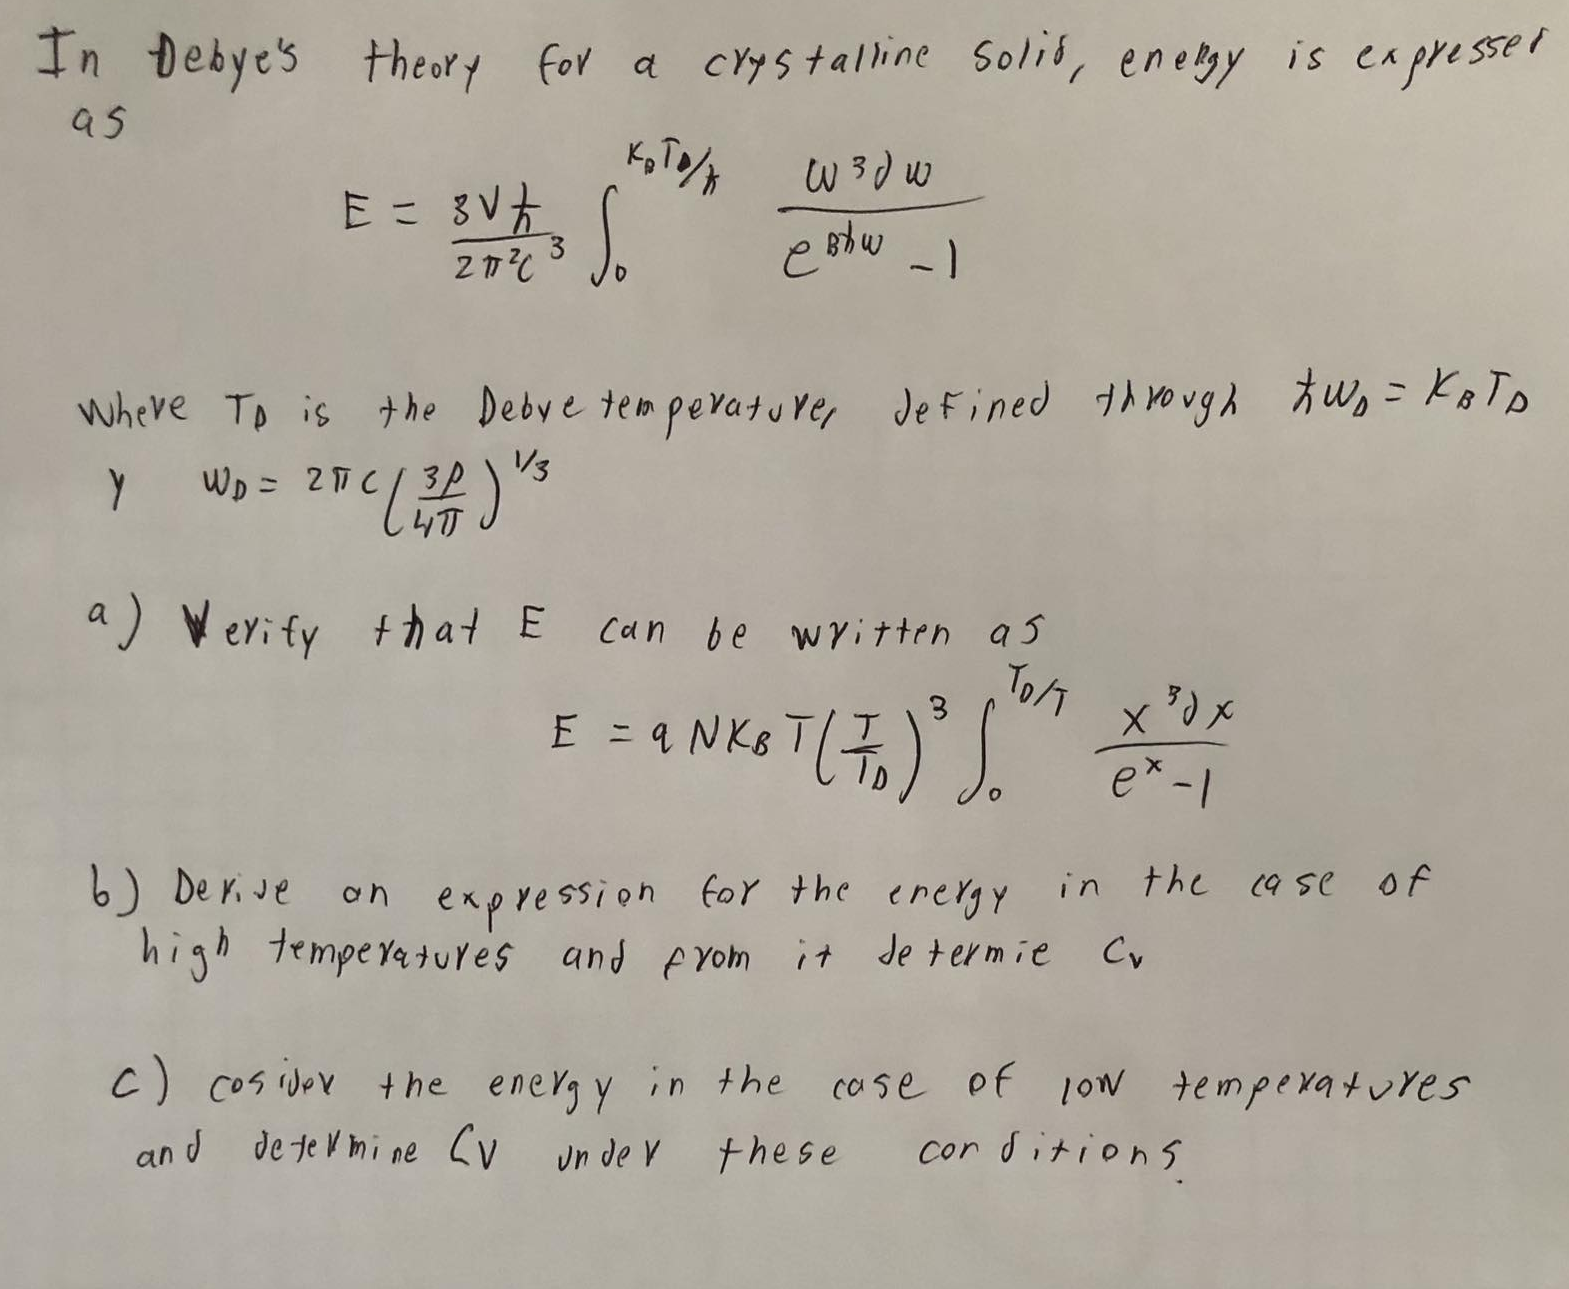 In Debye's theory for a crystalline solid, energy is expressed
as
E = 3Vħ/2π²c³ ∫₀^(K_BT_D/ħ) ω³∂ω/(e^(βħω) - 1)
Where T_D is the Debye temperature, defined through ħω_D = K_BT_D
y ω_D = 2πc(3ρ/4π)^(1/3)
a) Verify that E can be written as
E = 9NK_BT(T/T_D)³ ∫₀^(T_D/T) x³∂x/(e^x - 1)
b) Derive an expression for the energy in the case of
high temperatures and from it determie Cv
c) cosider the energy in the case of low temperatures
and determine Cv under these conditions.